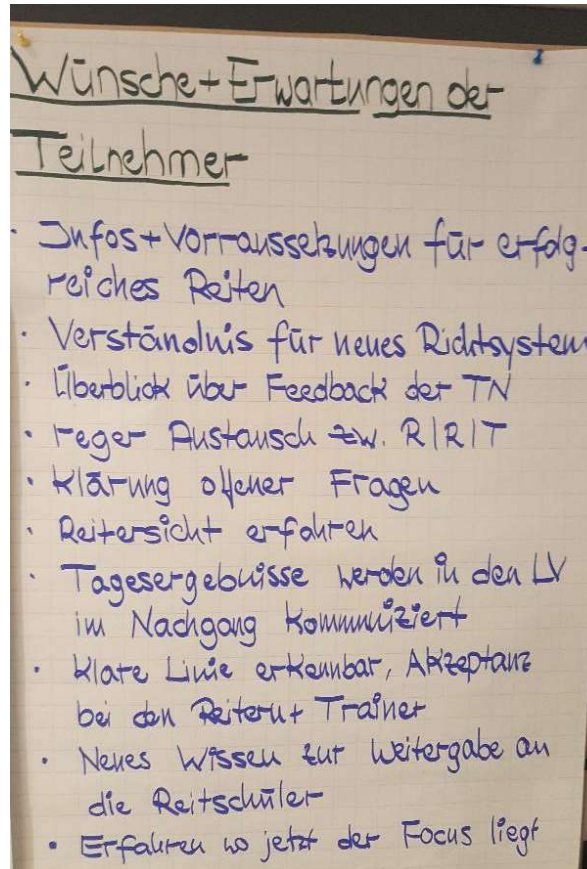 Wünsche + Erwartungen der
Teilnehmer
· Infos + Vorraussetzungen für erfolg-
reiches Reiten
· Verständnis für neues Richtsystem
· Überblick über Feedback der TN
· reger Austausch zw. R|R|T
· Klärung offener Fragen
· Reitersicht erfahren
· Tagesergebnisse werden in den LV
im Nachgang kommuniziert
· Klare Linie erkennbar, Akzeptanz
bei den Reitern + Trainer
· Neues Wissen zur Weitergabe an
die Reitschüler
· Erfahren wo jetzt der Focus liegt